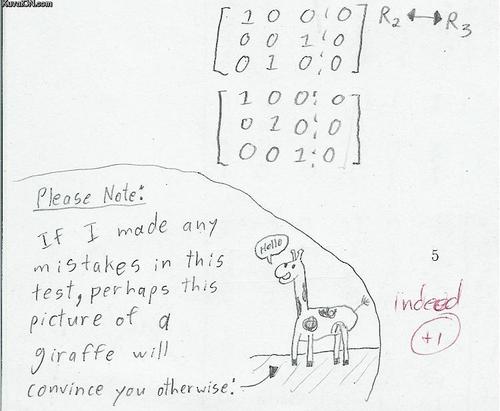 KuvatON.com
[1 0 0 ¦ 0]
[0 0 1 ¦ 0]
[0 1 0 ¦ 0]
R2 ↔ R3
[1 0 0 ¦ 0]
[0 1 0 ¦ 0]
[0 0 1 ¦ 0]
Please Note:
If I made any
mistakes in this
test, perhaps this
picture of a
giraffe will
convince you otherwise:
Hello
5
indeed
+1